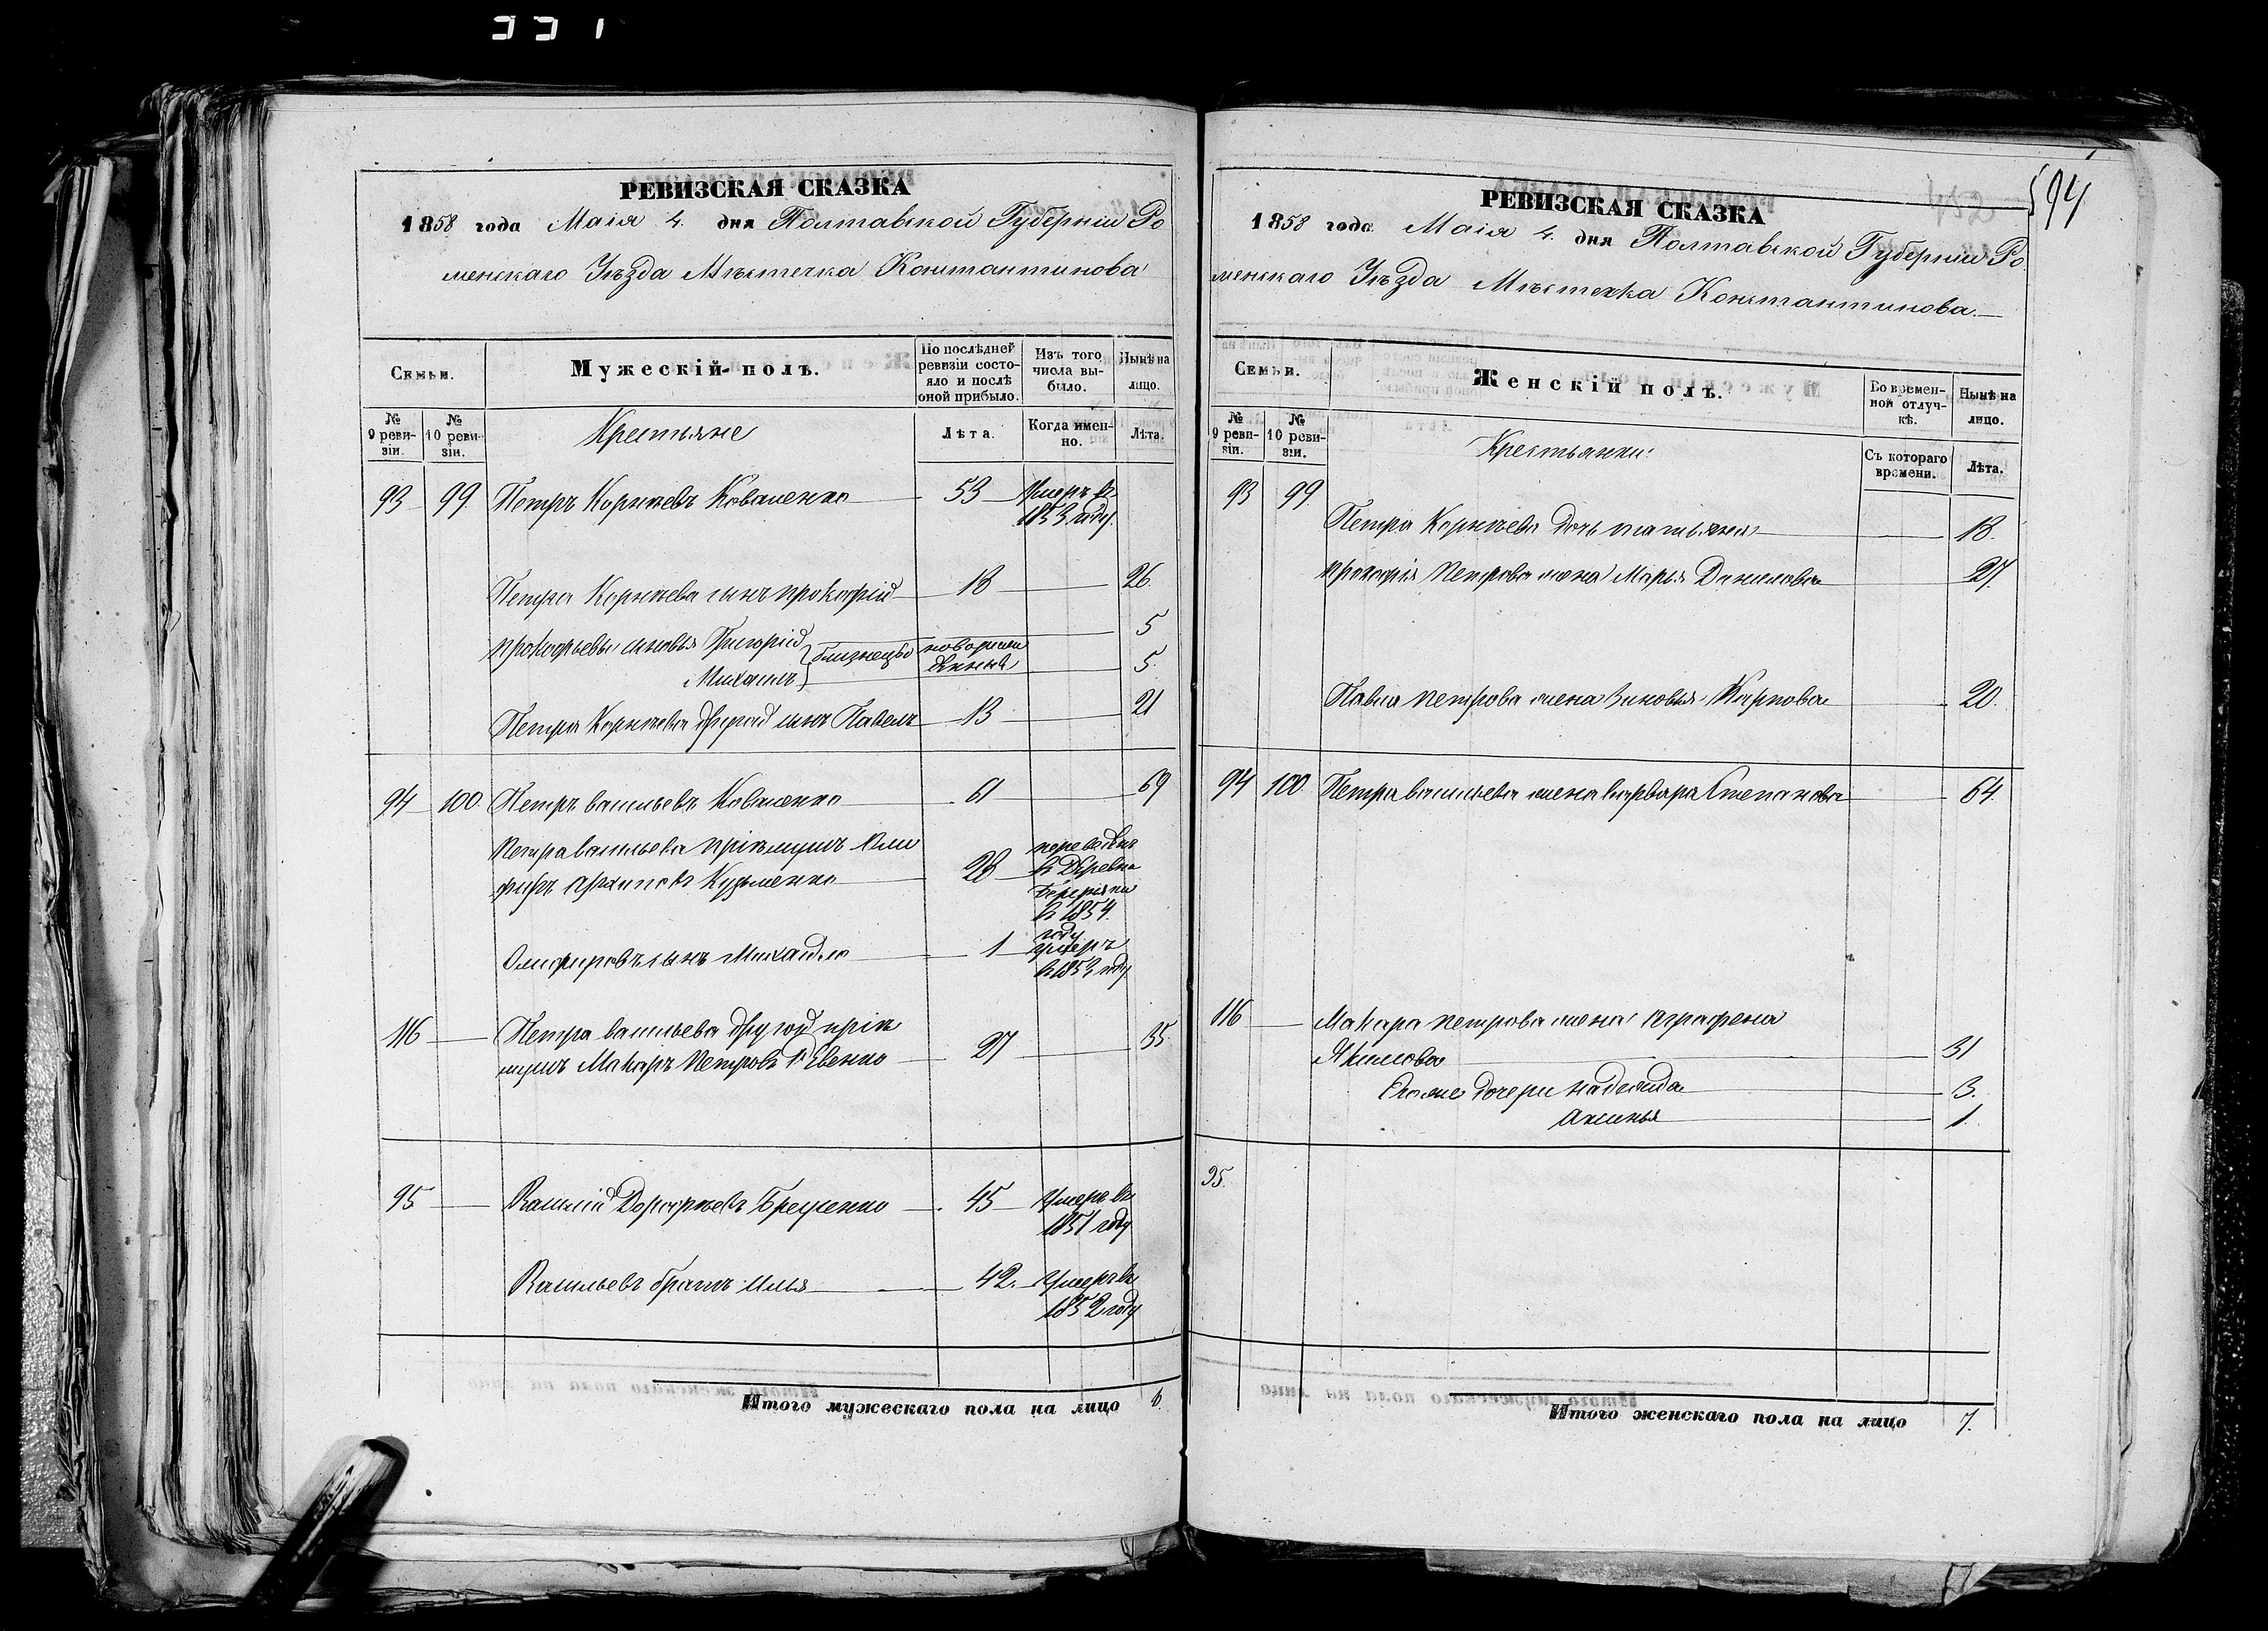 594
РЕВИЗСКАЯ СКАЗКА
1858 года Маія 4. дня Полтавской Губерніи Ро
менскаго Уѣзда Мѣстечка Константинова
Семьи.
Мужескій полъ.
По послѣдней ревизіи состояло и послѣ оной прибыло.
Изъ того числа выбыло.
Нынѣ на лицо.
№ 9 ревизіи.
№ 10 ревизіи.
Крестьяне
Лѣта.
Когда именно.
Лѣта.
93 99 Петръ Корнѣевъ Коваленко 53 Умеръ въ
1853 году.
Петра Корнѣева сынъ Прокофій 18 26
Прокофьевы сыновья Григорій 5
близнецы новорож
Михаилъ денные 5.
Петра Корнѣева другой сынъ Павелъ 13 21
94 100. Петръ Васильевъ Коваленко 61 69
Петра Васильева пріемышъ Оли
феръ Архиповъ Кузьменко 28 переведенъ
въ деревню
въ 1854.
году
Олиферовъ сынъ Михайло 1 умеръ
въ 1853 году
116 Петра Васильева другой пріе
мышъ Макаръ Петровъ 27 35
95 Василій 45 умеръ въ
1851 году
Васильевъ братъ Илья 42. умеръ въ
1852 году
Итого мужескаго пола на лицо 6.
РЕВИЗСКАЯ СКАЗКА
1858 года Маія 4. дня Полтавской Губерніи Ро
менскаго Уѣзда Мѣстечка Константинова.
Семьи.
Женскій полъ.
Во временной отлучкѣ.
Нынѣ на лицо.
№ 9 ревизіи.
№ 10 ревизіи.
Крестьянки
Съ котораго времени.
Лѣта.
93 99
Петра Корнѣева дочь Татьяна 18.
Прокофія Петрова жена Марья Данилова 27
Павла Петрова жена Зиновья Карпова 20.
94 100 Петра Васильева жена Варвара Степанова 64.
116 Макара Петрова жена Аграфена
Якимова 31
Его же дочери Надежда 3.
Аксинья 1.
95.
Итого женскаго пола на лицо 7.